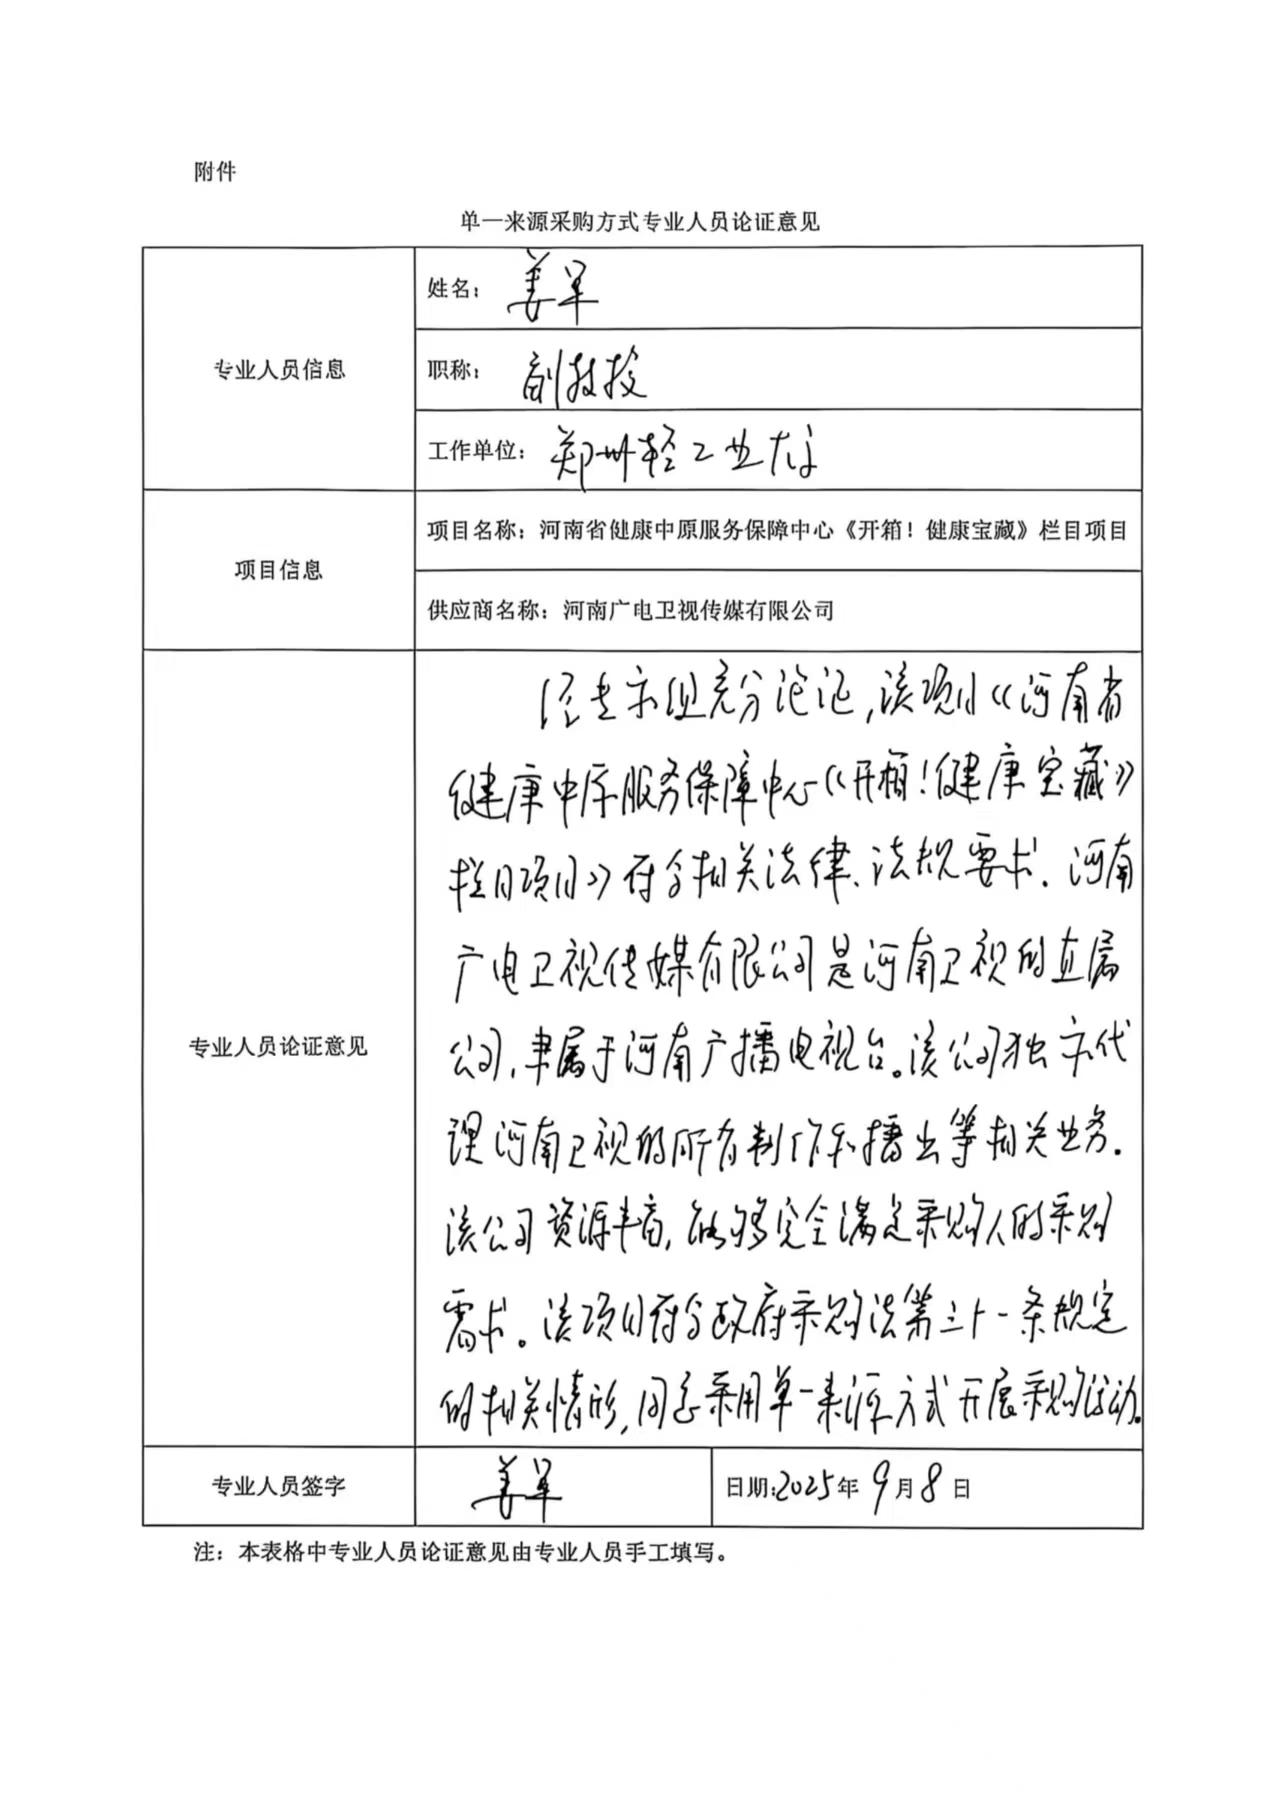 附件
单一来源采购方式专业人员论证意见
专业人员信息
姓名：姜军
职称：副教授
工作单位：郑州轻工业大学
项目信息
项目名称：河南省健康中原服务保障中心《开箱！健康宝藏》栏目项目
供应商名称：河南广电卫视传媒有限公司
专业人员论证意见
经专家组充分论证，该项目《河南省
健康中原服务保障中心《开箱！健康宝藏》
栏目项目》符合相关法律、法规要求．河南
广电卫视传媒有限公司是河南卫视的直属
公司，隶属于河南广播电视台。该公司独家代
理河南卫视的所有制作和播出等相关业务．
该公司资源丰富，能够完全满足采购人的采购
需求。该项目符合政府采购法第三十一条规定
的相关情形，同意采用单一来源方式开展采购活动。
专业人员签字
姜军
日期：2025年9月8日
注：本表格中专业人员论证意见由专业人员手工填写。